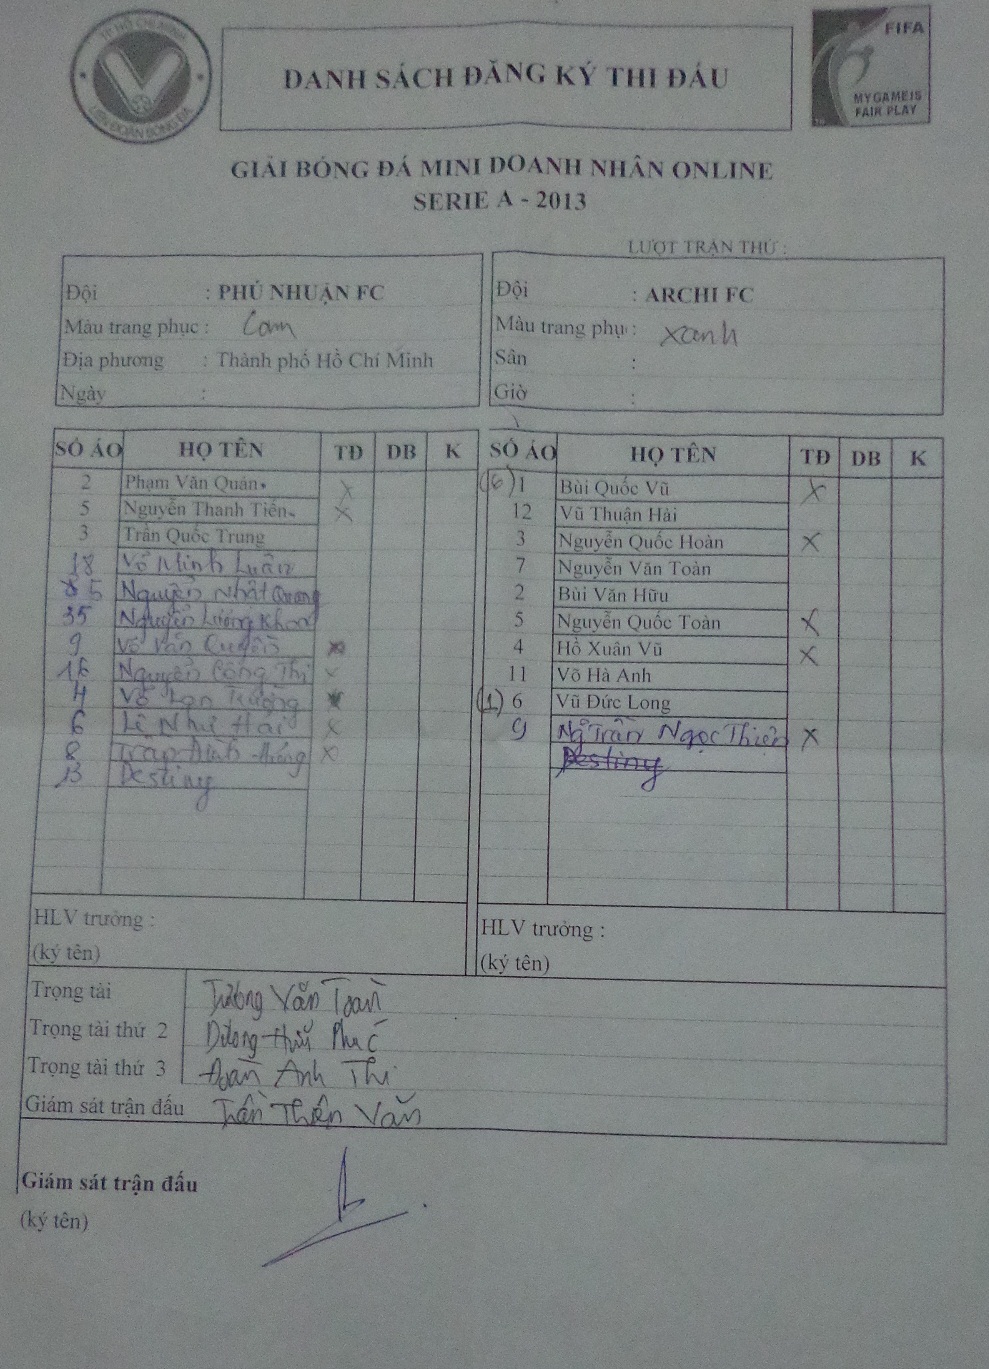 TP HỒ CHÍ MINH
LIÊN ĐOÀN BÓNG ĐÁ
DANH SÁCH ĐĂNG KÝ THI ĐẤU
FIFA
MY GAME IS
FAIR PLAY
GIẢI BÓNG ĐÁ MINI DOANH NHÂN ONLINE
SERIE A - 2013
LƯỢT TRẬN THỨ :
Đội : PHÚ NHUẬN FC
Màu trang phục : Cam
Địa phương : Thành phố Hồ Chí Minh
Ngày :
Đội : ARCHI FC
Màu trang phụ : Xanh
Sân :
Giờ :
SỐ ÁO HỌ TÊN TĐ DB K
2 Phạm Văn Quán X
5 Nguyễn Thanh Tiến X
3 Trần Quốc Trung
18 Võ Minh Luân
5 Nguyễn Nhật Quang
35 Nguyễn Lương Khoa
9 Võ Văn
16 Nguyễn Công Thi X
4 Võ Trường
6 Lê Như Hải X
8 Trần Đình X
13 Destiny
SỐ ÁO HỌ TÊN TĐ DB K
(6) 1 Bùi Quốc Vũ X
12 Vũ Thuận Hải
3 Nguyễn Quốc Hoàn X
7 Nguyễn Văn Toàn
2 Bùi Văn Hữu
5 Nguyễn Quốc Toản X
4 Hồ Xuân Vũ X
11 Võ Hà Anh
(1) 6 Vũ Đức Long
9 Ng Trần Ngọc Thiện X
Destiny
HLV trưởng :
(ký tên)
HLV trưởng :
(ký tên)
Trọng tài Trương Văn Toàn
Trọng tài thứ 2 Dương Hữu Phúc
Trọng tài thứ 3 Đoàn Anh Thi
Giám sát trận đấu Trần Thiện Văn
Giám sát trận đấu
(ký tên)